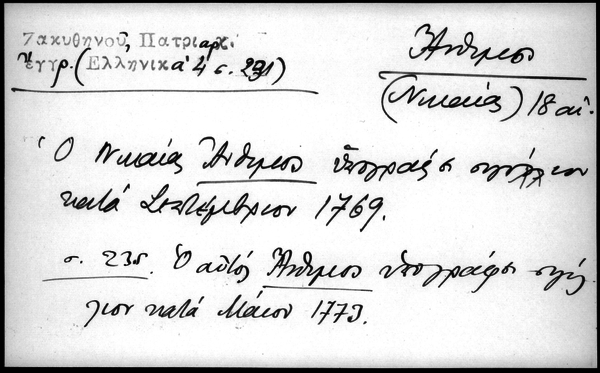 Ζακυθηνοῦ, Πατριαρχ.
ἔγγρ. (Ἑλληνικά 4 σ. 231)
Ἄνθιμος
(Νικαίας) 18 αἰ.
Ὁ Νικαίας Ἄνθιμος ὑπογράφει σιγίλλιον
κατά Σεπτέμβριον 1769.
σ. 235. Ὁ αὐτός Ἄνθιμος ὑπογράφει σιγίλ
λιον κατά Μάιον 1773.